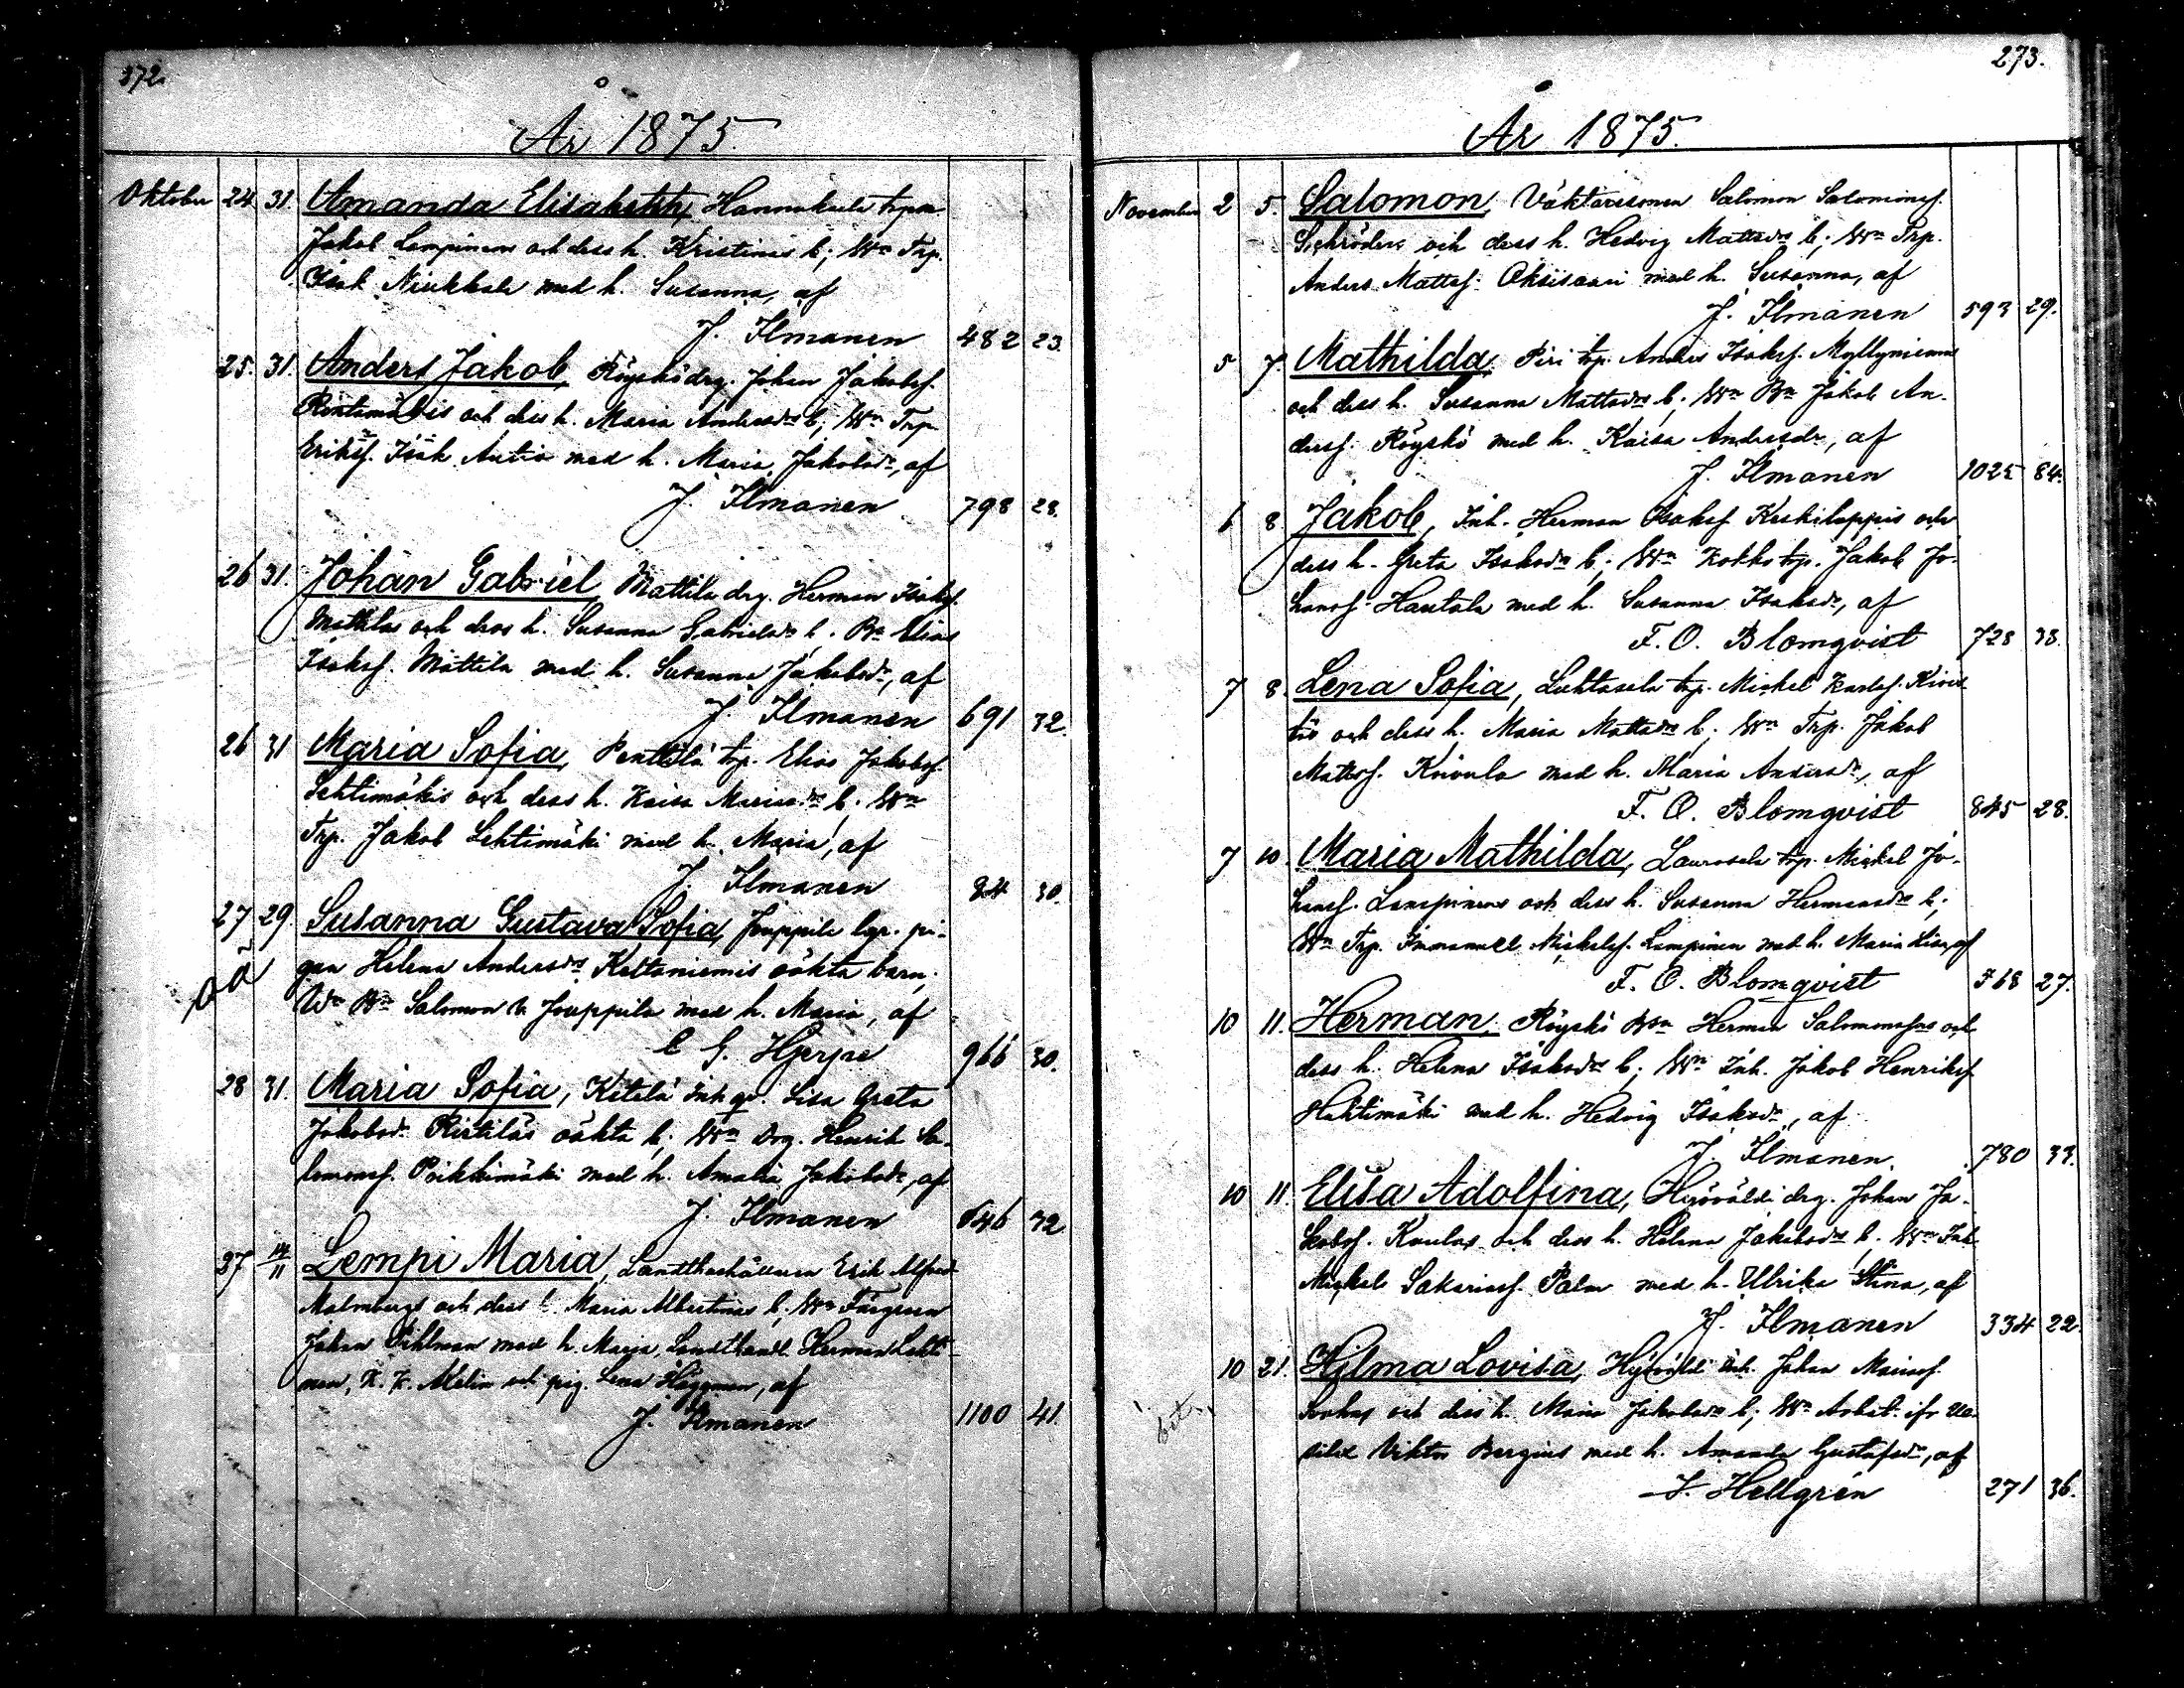 372.
År 1875.
Oktober 24 31. Amanda Elisabeth, Hannuksela
Jakob Lampinens och dess h. Kristinas b; Wn Trp.
Isak Niukkala med h. Susanna, af
J. Ilmanen 482 23.
25. 31. Anders Jakob, Röyskö drg. Johan Jakobsf.
Rintamäkis och dess h. Maria Andersdrs b; Wn Trp.
Eriksf. Isak Autio med h. Maria Jakobsdr, af
J. Ilmanen 798 28.
26 31. Johan Gabriel, Mattila drg. Herman Isaksf.
Mattilas och dess h. Susanna Gabrielsdrs b. Bn Elias
Isaksf. Mattila med h. Susanna Jakobsdr, af
J. Ilmanen 691 32.
26 31 Maria Sofia, Penttilä trp. Elias Jakobsf.
Lehtimäkis och dess h. Kaisa Mariasdrs b. Wn
Trp. Jakob Lehtimäki med h. Maria, af
J. Ilmanen 84 30.
27 29. Susanna Gustava Sofia, Jouppila pi-
oä gan Helena Andersdrs Keltaniemis oäkta barn;
Wn Bn Salomon Jouppila med h. Maria, af
C G. Hjerpe 966 30.
28 31. Maria Sofia, Kitilä Inh qv. Lisa Greta
Jakobsdr Ristiläs oäkta b; Wn Drg. Henrik Sa-
lomonsf. Poikkimäki med h. Amalia Jakobsdr, af
J. Ilmanen 646 32
27 14/11 Lempi Maria, Landthushållaren Erik Alfred
Malmbergs och dess h. Maria Albertinas b; Wn Färgaren
Johan Pihlman med h. Maria, Landthandl. Herman Lehti-
nen, K. F. Melin och pig. Lena Häggman, af
J. Ilmanen 1100 41.
273.
År 1875.
November 2 5. Salomon, Väktaresonen Salomon Salomonsf.
Schröders och dess h. Hedvig Mattsdrs b; Wn Trp.
Anders Mattsf. Oksisaari med h. Susanna, af
J. Ilmanen 593 29.
5 7. Mathilda, Piri trp. Anders Isaksf. Myllyniemis
och dess h. Susanna Mattsdrs b; Wn Bn Jakob An-
dersf. Röyskö med h. Kaisa Andersdr, af
J. Ilmanen 1025 84.
6 8. Jakob, Inh. Herman Isaksf. Keskiluppis och
dess h. Greta Isaksdrs b; Wn Kokko trp. Jakob Jo-
hansf. Hautala med h. Susanna Isaksdr, af
F. O. Blomqvist 728 38.
7 8. Lena Sofia, Luhtasela trp. Mickel Karlsf. Kivis-
tös och dess h. Maria Mattsdrs b; Wn Trp. Jakob
Mattsf. Knivula med h. Maria Andersdr, af
F. O. Blomqvist 845 28.
7 10. Maria Mathilda, Laurosela trp. Mickel Jo-
hansf. Lampinens och dess h. Susanna Hermansdrs b;
Wn Trp. Immanuel Mickelsf. Lampinen med h. Maria Lisa, af
F. O. Blomqvist 568 27.
10 11. Herman, Röyskö Bn Herman Salomonsfns och
dess h. Helena Isaksdrs b; Wn Inh. Jakob Henriksf.
Hahtimäki med h. Hedvig Isaksdr, af
J. Ilmanen. 780 33.
10 11. Elisa Adolfina, Hyövälti drg. Johan Ja-
kobsf. Kaulas och dess h. Helena Jakobsdrs b. Wn Inh.
Mickel Sakariasf. Palm med h. Ulrika Stina, af
J. Ilmanen 334 22.
10 21. Hilma Lovisa, Hyövälti Inh. Johan Mariasf.
och dess h. Maria Jakobsdrs b; Wn Arbet. ifr Va-
Viktor Bergius med h. Amanda Gustafsdr, af
J. Hellgrén 271 36.